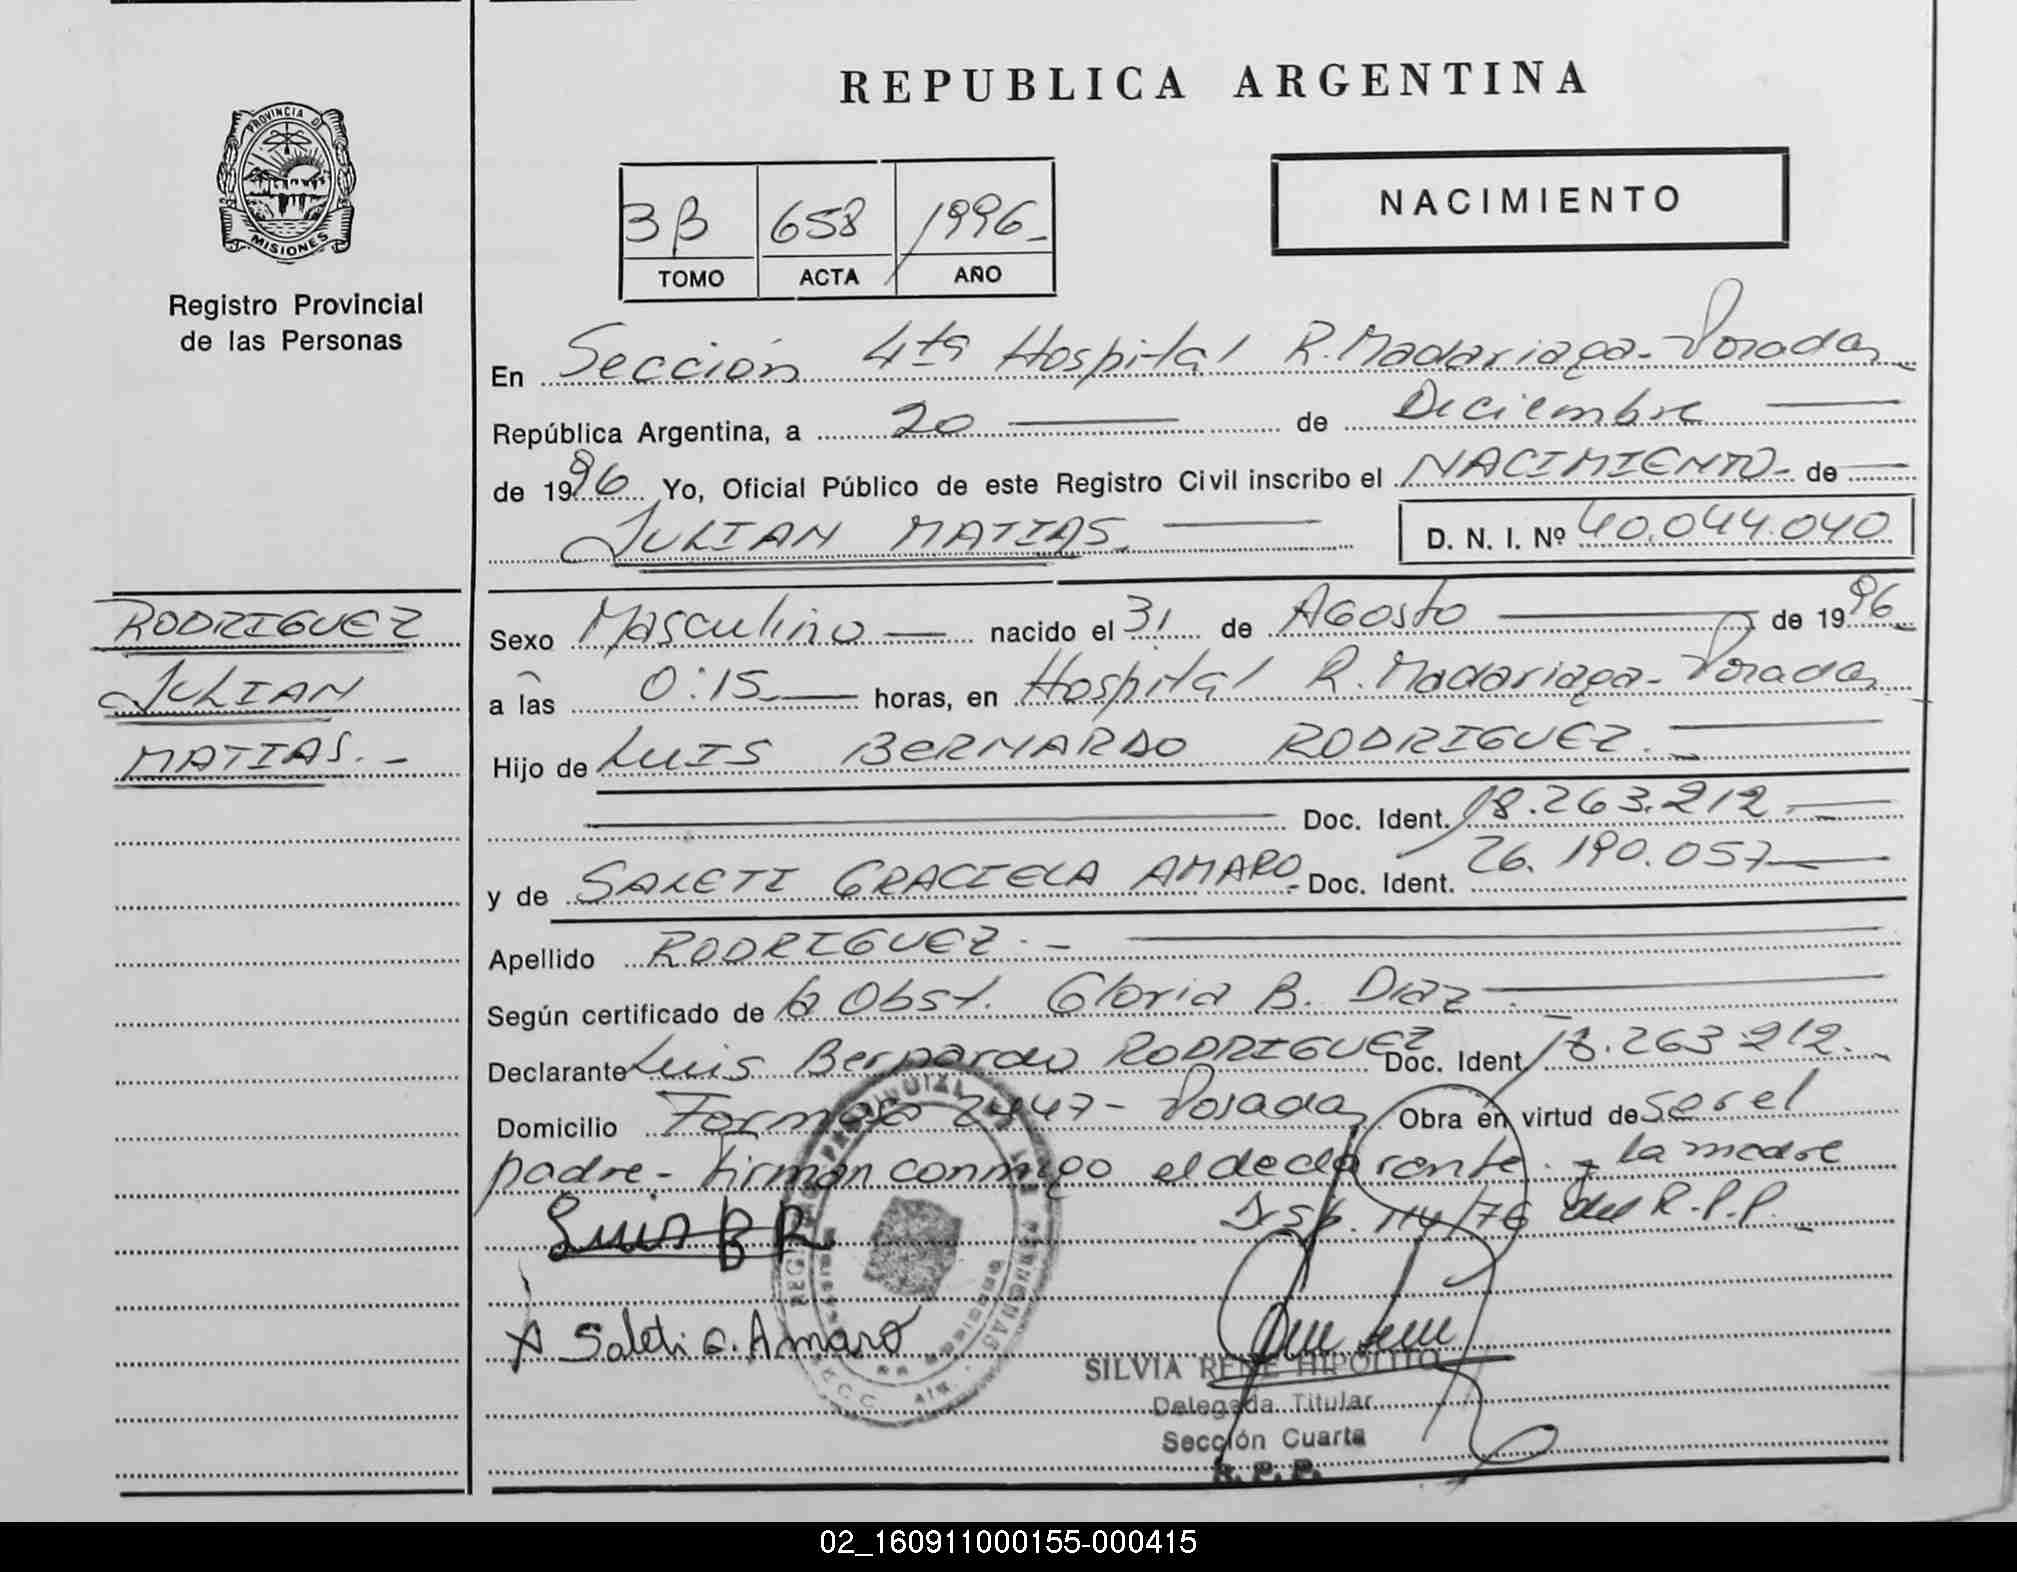 REPUBLICA ARGENTINA
PROVINCIA DE
MISIONES
Registro Provincial
de las Personas
3B 658 1996-
TOMO ACTA AÑO
NACIMIENTO
En Sección 4ta Hospital R. Madariaga-Posadas
República Argentina, a 20 de Diciembre
de 1996 Yo, Oficial Público de este Registro Civil inscribo el NACIMIENTO- de
JULIAN MATIAS. D. N. I. Nº 40.044.040
RODRIGUEZ
JULIAN
MATIAS.-
Sexo Masculino nacido el 31 de Agosto de 1996
a las 0:15 horas, en Hospital R. Madariaga-Posadas
Hijo de LUIS BERNARDO RODRIGUEZ.-
Doc. Ident. 18.263.212
y de SALETI GRACIELA AMARO- Doc. Ident. 26.190.057
Apellido RODRIGUEZ.-
Según certificado de la Obst. Gloria B. Diaz
Declarante Luis Bernardo RODRIGUEZ Doc. Ident. 18.263.212.
Domicilio Formosa 2447- Posadas Obra en virtud de ser el
padre.- Firman conmigo el declarante.- la madre
Disp. 114/76 del R.P.P.-
Luis B R
X Saleti G. Amaro
SILVIA RENE HIPOLITO
Delegada Titular
Sección Cuarta
R. P. P.
02_160911000155-000415